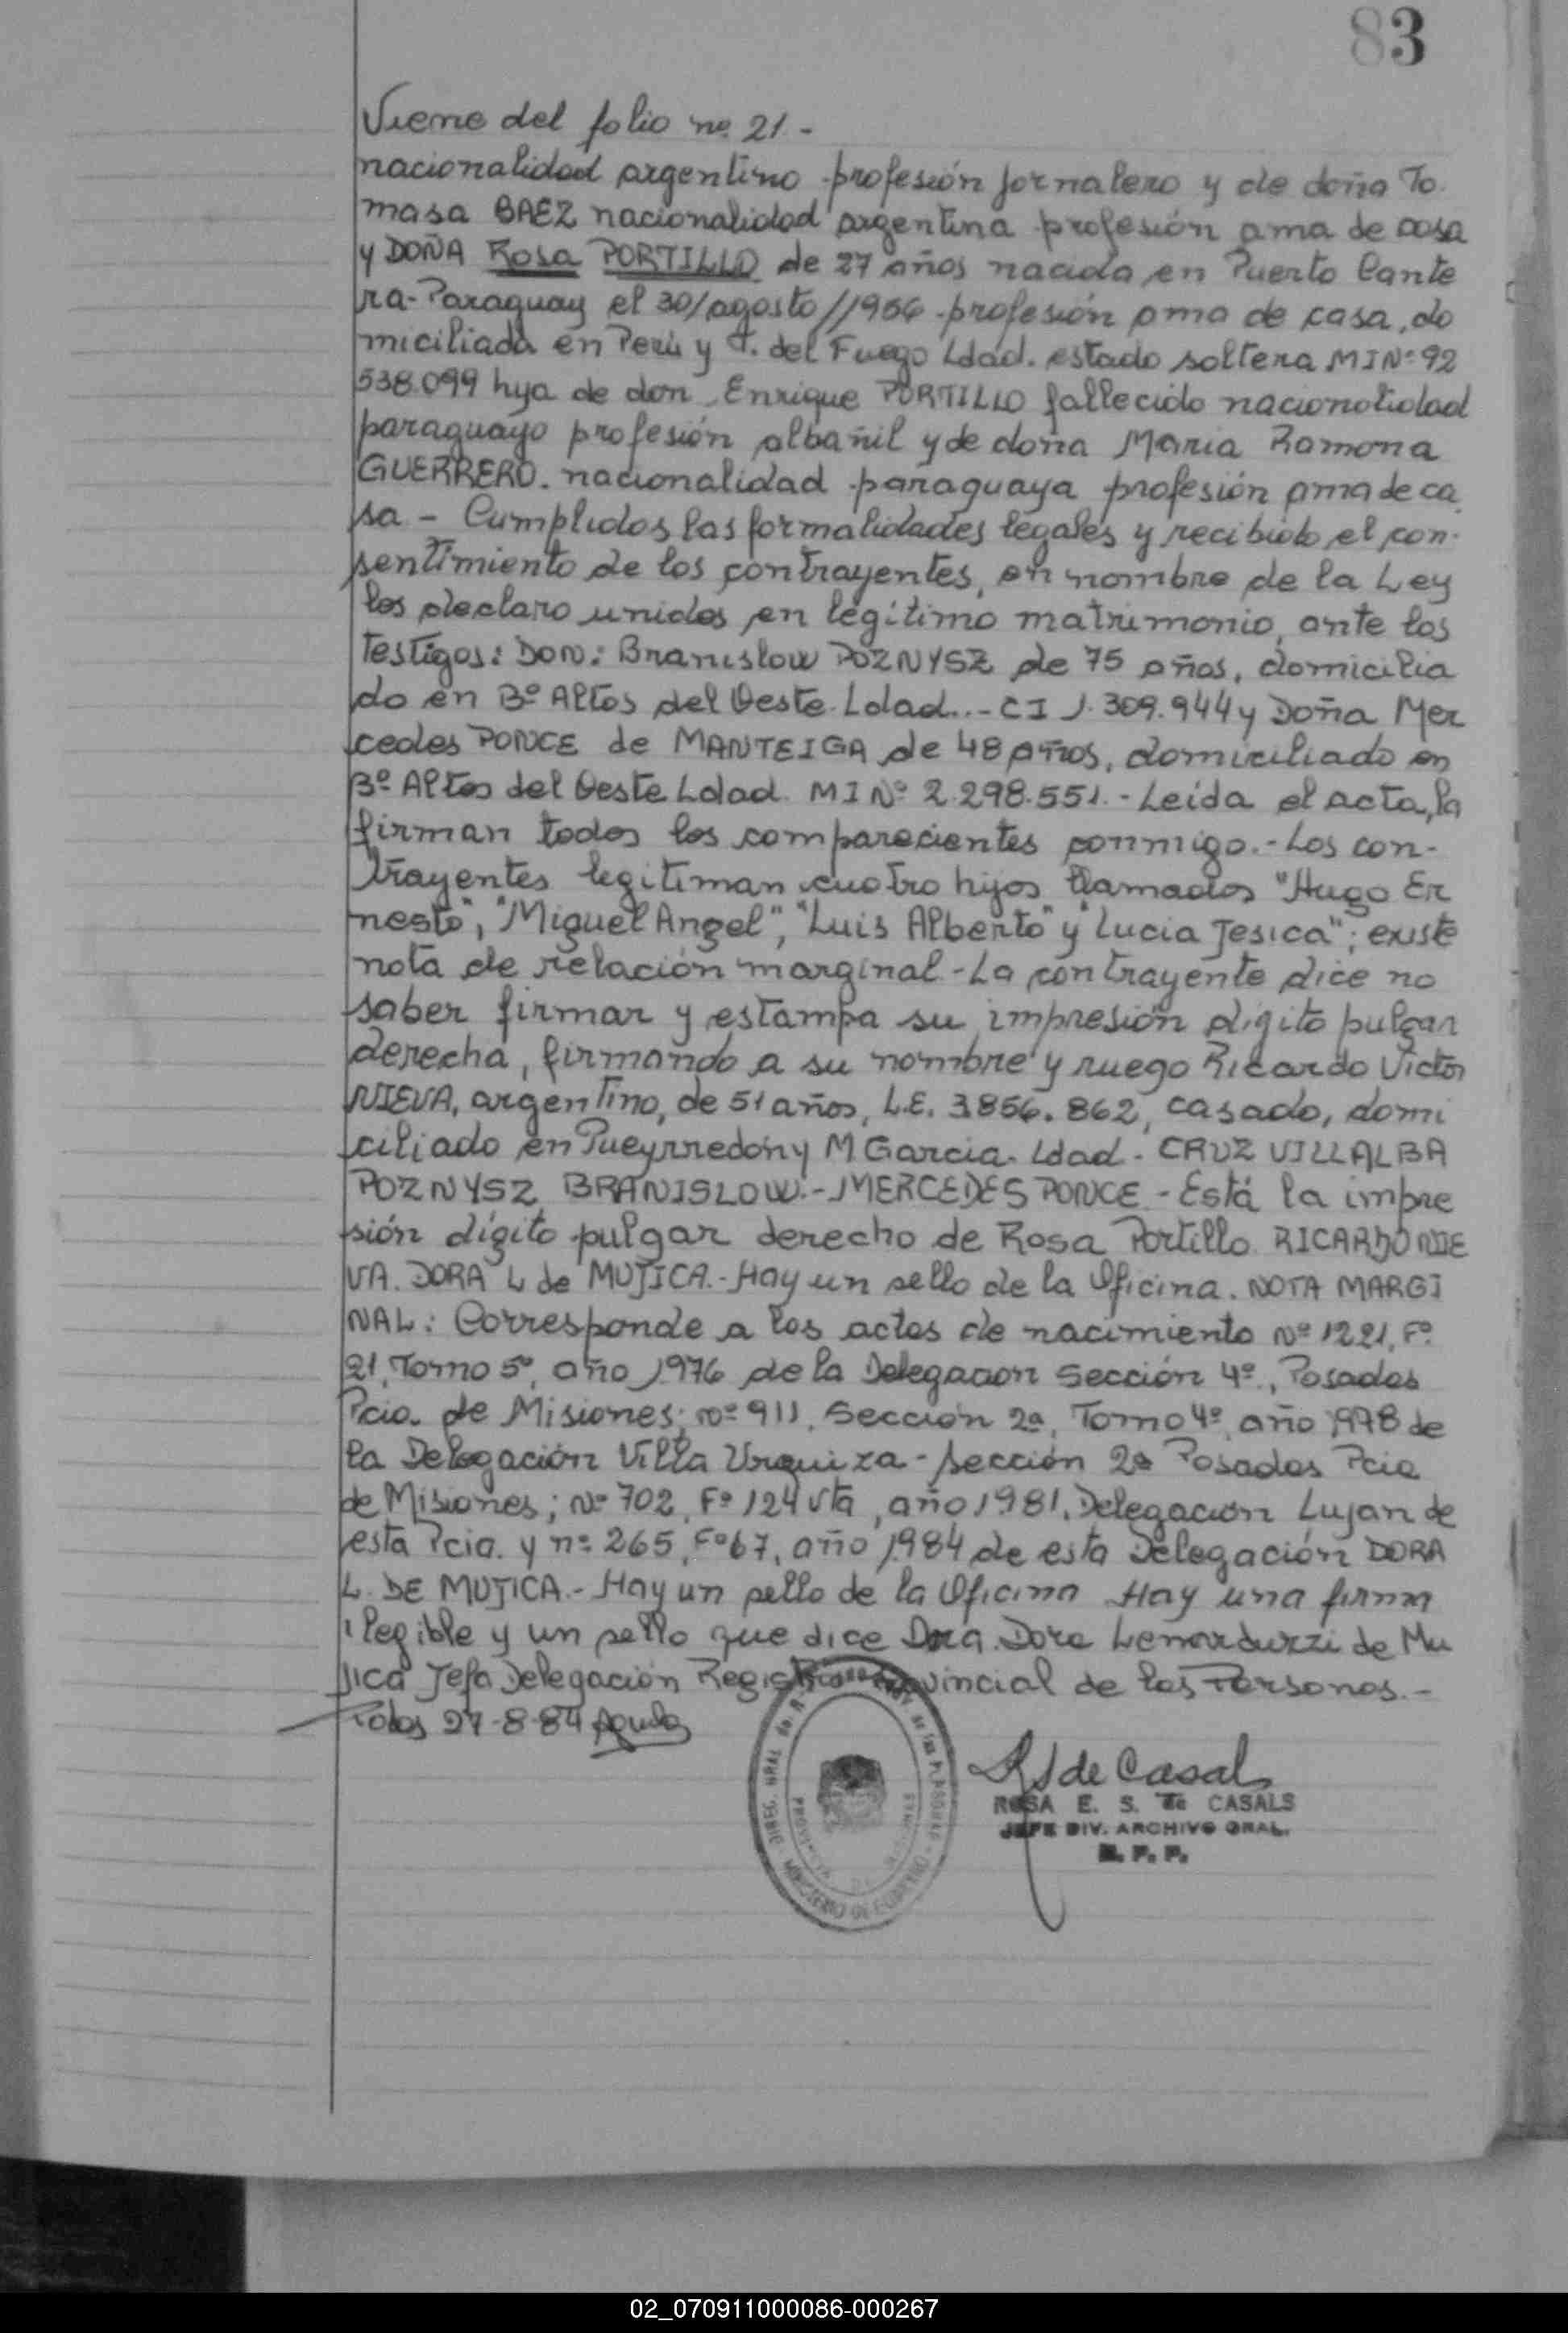 83
Viene del folio nº 21.-
nacionalidad argentino profesión jornalero y de doña To
masa BAEZ nacionalidad argentina profesión ama de casa
y DOÑA Rosa PORTILLO de 27 años nacida en Puerto Cante
ra-Paraguay el 30/agosto//1956 profesión ama de casa, do
miciliada en Perú y T. del Fuego Ldad. estado soltera MI Nº 92
538.099 hija de don Enrique PORTILLO fallecido nacionalidad
paraguayo profesión albañil y de doña Maria Ramona
GUERRERO. nacionalidad paraguaya profesión ama de ca
sa.- Cumplidos las formalidades legales y recibido el con-
sentimiento de los contrayentes, en nombre de la Ley
los declaro unidos en legítimo matrimonio, ante los
testigos: DON: Branislow POZNYSZ de 75 años, domicilia
do en Bº Altos del Oeste Ldad..- CI 1.309.944 y Doña Mer
cedes PONCE de MANTEIGA de 48 años, domiciliado en
Bº Altos del Oeste Ldad. MI Nº 2.298.551.- Leída el acta, la
firman todos los comparecientes conmigo.- Los con-
trayentes legitiman cuatro hijos llamados "Hugo Er
nesto", "Miguel Angel", "Luis Alberto" y "Lucia Jesica"; existe
nota de relación marginal-La contrayente dice no
saber firmar y estampa su impresión dígito pulgar
derecha, firmando a su nombre y ruego Ricardo Victor
NIEVA, argentino, de 51 años, L.E. 3.856.862, casado, domi
ciliado en Pueyrredón y M Garcia. Ldad. CRUZ VILLALBA
POZNYSZ BRANISLOW.-MERCEDES PONCE.-Está la impre
sión dígito pulgar derecho de Rosa Portillo. RICARDO NIE
VA. DORA L de MUJICA.-Hay un sello de la Oficina. NOTA MARGI
NAL: Corresponde a los actos de nacimiento Nº 1221, Fº
21, Tomo 5º, año 1976 de la Delegacion Sección 4º, Posadas
Pcia. de Misiones; nº 911, Sección 2ª, Tomo 4º, año 1978 de
la Delegación Villa Urquiza-sección 2ª Posadas Pcia
de Misiones; Nº 702, Fº 124 vta, año 1981, Delegación Lujan de
esta Pcia. y nº 265, Fº 67, año 1984 de esta Delegación DORA
L. DE MUJICA.-Hay un sello de la Oficina Hay una firma
ilegible y un sello que dice Dora Lenarduzzi de Mu
jica Jefa Delegación Registro Provincial de las Personas.-
Pdas 27-8-84
RS de Casals
ROSA E. S. de CASALS
JEFE DIV. ARCHIVO GRAL.
R. P. P.
02_070911000086-000267